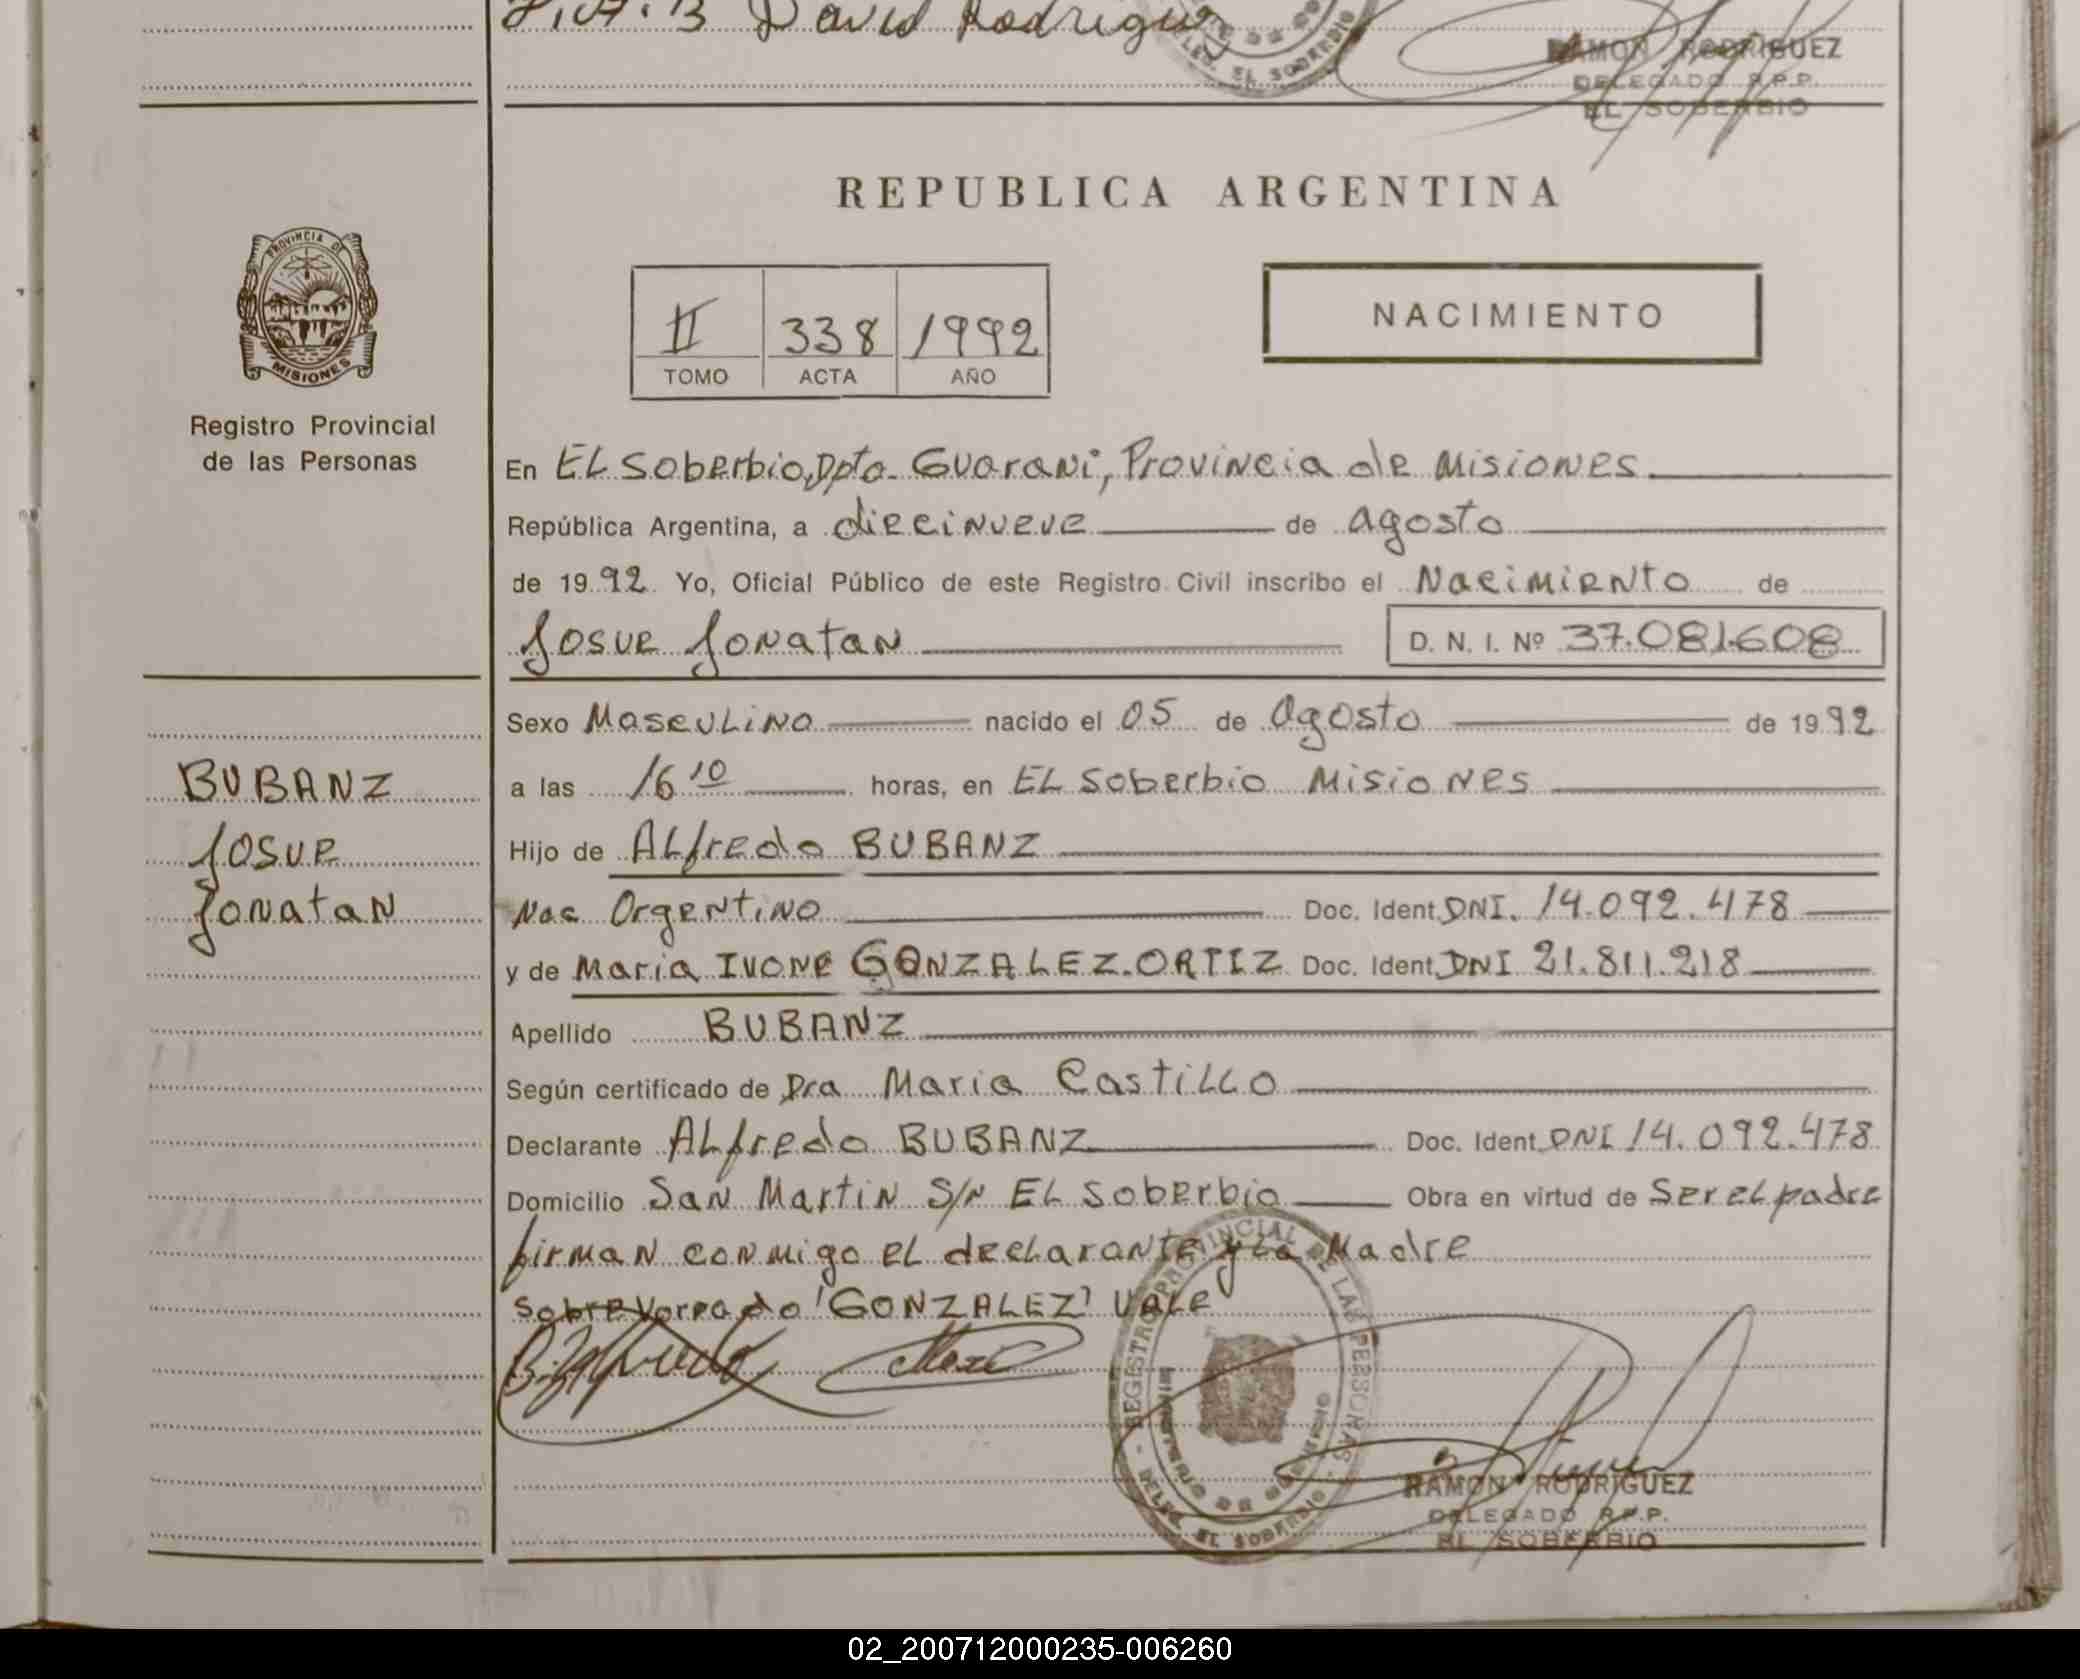 David Rodriguez
RAMON RODRIGUEZ
DELEGADO R.P.P.
EL SOBERBIO
REPUBLICA ARGENTINA
PROVINCIA DE
MISIONES
Registro Provincial
de las Personas
II 338 1992
TOMO ACTA AÑO
NACIMIENTO
En EL Soberbio, Dpto. Guarani, Provincia de Misiones
República Argentina, a diecinueve de agosto
de 1992 Yo, Oficial Público de este Registro Civil inscribo el Nacimiento de
Josue Jonatan D. N. I. Nº 37.081.608
Sexo Masculino nacido el 05 de Agosto de 1992
a las 16 10 horas, en EL Soberbio Misiones
Hijo de ALfredo BUBANZ
Nac Argentino Doc. Ident. DNI. 14.092.478
y de Maria IVONE GONZALEZ.ORTIZ Doc. Ident. DNI 21.811.218
Apellido BUBANZ
Según certificado de Dra Maria Castillo
Declarante ALfredo BUBANZ Doc. Ident. DNI 14.092.478
Domicilio San Martin S/N EL Soberbio Obra en virtud de Ser el padre
firman conmigo el declarante y La Madre
"GONZALEZ" Vale
BUBANZ
Josue
Jonatan
REGISTRO PROVINCIAL DE LAS PERSONAS
DELEG. EL SOBERBIO
RAMON RODRIGUEZ
DELEGADO R.P.P.
EL SOBERBIO
02_200712000235-006260